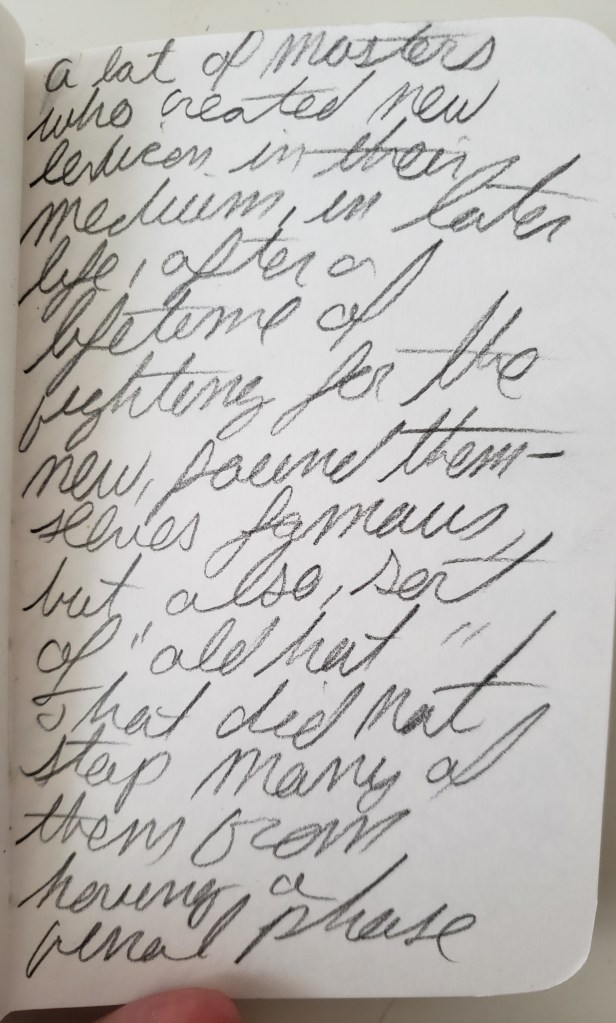 a lot of masters
who created new
lexicon in their
medium, in later
life, after a
lifetime of
fighting for the
new, found them-
selves famous,
but also, sort
of "old hat"
That did not
stop many of
them from
having a
final phase